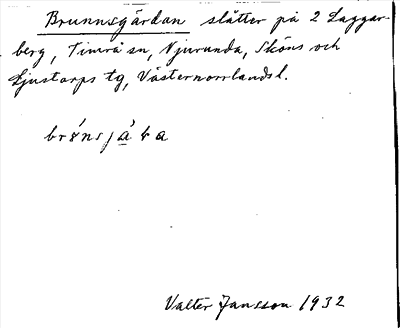 Brunnsgärdan slåtter på 2 Laggar-
berg, Timrå sn, Njurunda, Sköns och
Ljustorps tg, Västernorrlands l.
Valter Jansson 1932